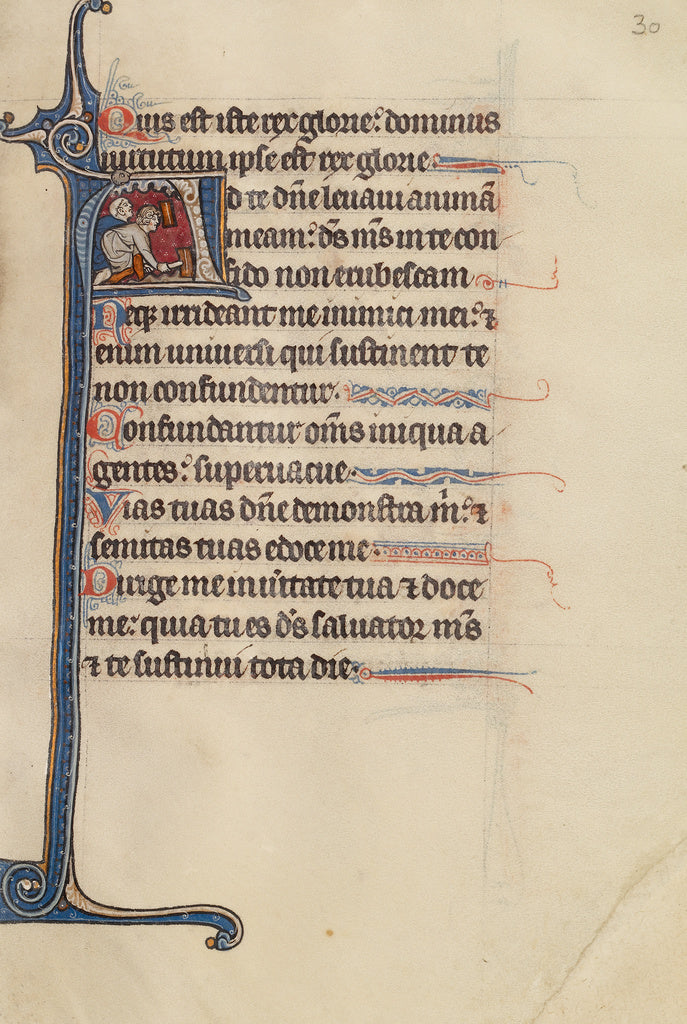 30
Quis est iste rex glorie: dominus
uirtutum ipse est rex glorie.
Ad te dñe leuaui animā
meam: d̄s m̄s in te con
fido non erubescam
Neq; irrideant me inimici mei: ⁊
enim uniuersi qui sustinent te
non confundentur.
Confundantur om̄s iniqua a
gentes: superuacue.
Vias tuas dñe demonstra m̄: ⁊
semitas tuas edoce me.
Dirige me in ueritate tua ⁊ doce
me: quia tu es d̄s saluator m̄s
⁊ te sustinui tota die.